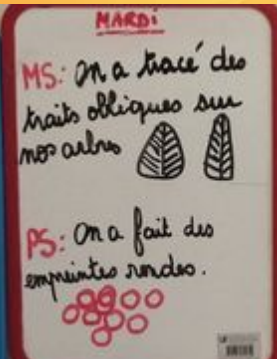 MARDi
MS: On a tracé des
traits obliques sur
nos arbres
PS: On a fait des
empreintes rondes.